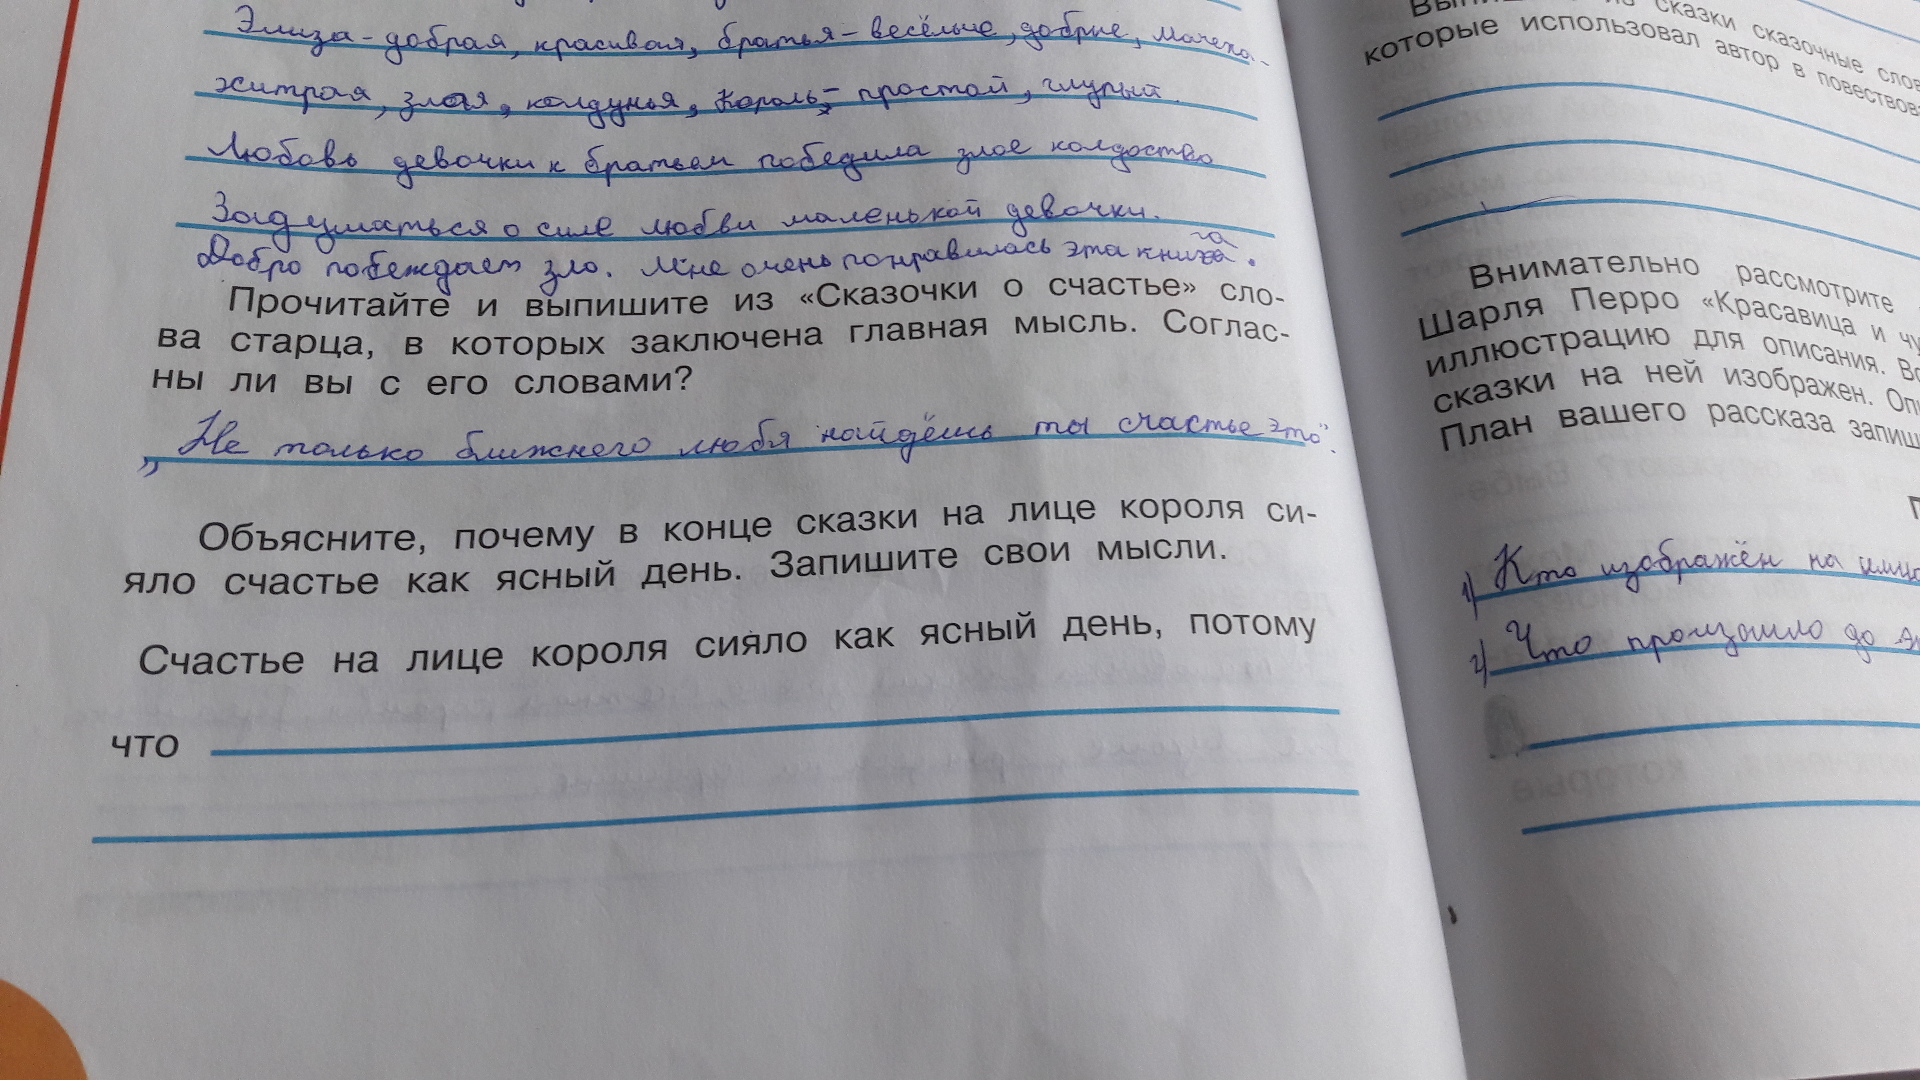 Элиза - добрая, красивая, братья - весёлые, добрые, мачеха -
хитрая, злая, колдунья, король, - простой, глупый.
Любовь девочки к братьям победила злое колдоство
Задуматься о силе любви маленькой девочки.
Добро побеждает зло. Мне очень понравилась эта книга.
Прочитайте и выпишите из «Сказочки о счастье» сло-
ва старца, в которых заключена главная мысль. Соглас-
ны ли вы с его словами?
„Не только ближнего любя найдёшь ты счастье это".
Объясните, почему в конце сказки на лице короля си-
яло счастье как ясный день. Запишите свои мысли.
Счастье на лице короля сияло как ясный день, потому
что
сказки сказочные
которые использовал автор в
Внимательно рассмотрите
Шарля Перро «Красавица и
иллюстрацию для описания.
сказки на ней изображен.
План вашего рассказа
1) Кто изображён на
2) Что произошло до